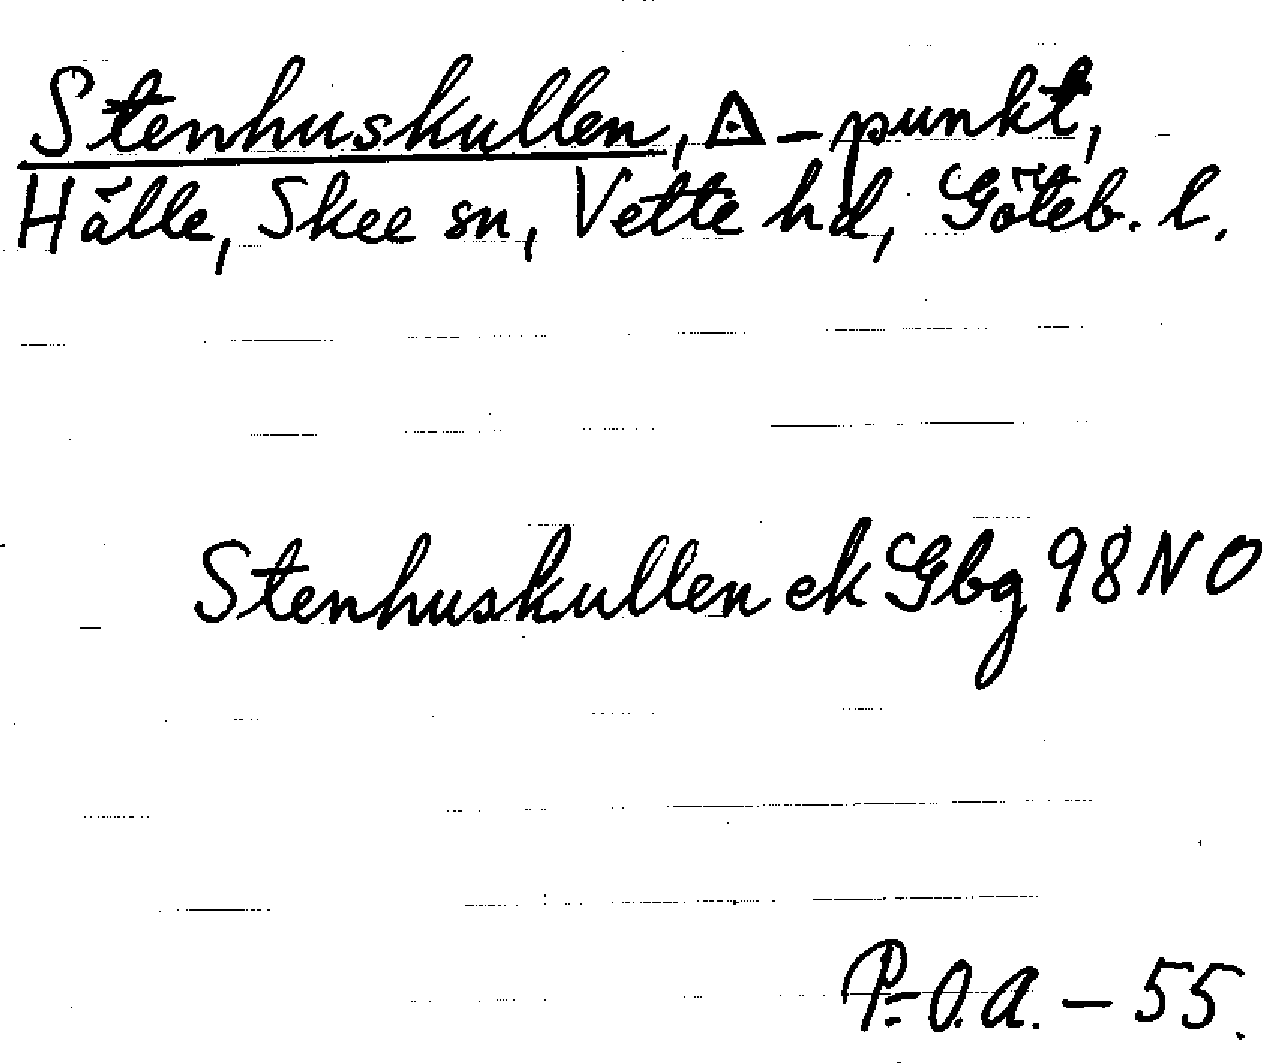 Stenhuskullen, △-punkt,
Hälle, Skee sn, Vette hd, Göteb. l.
Stenhuskullen ek Gbg 98 NO
P.-O.A. - 55.